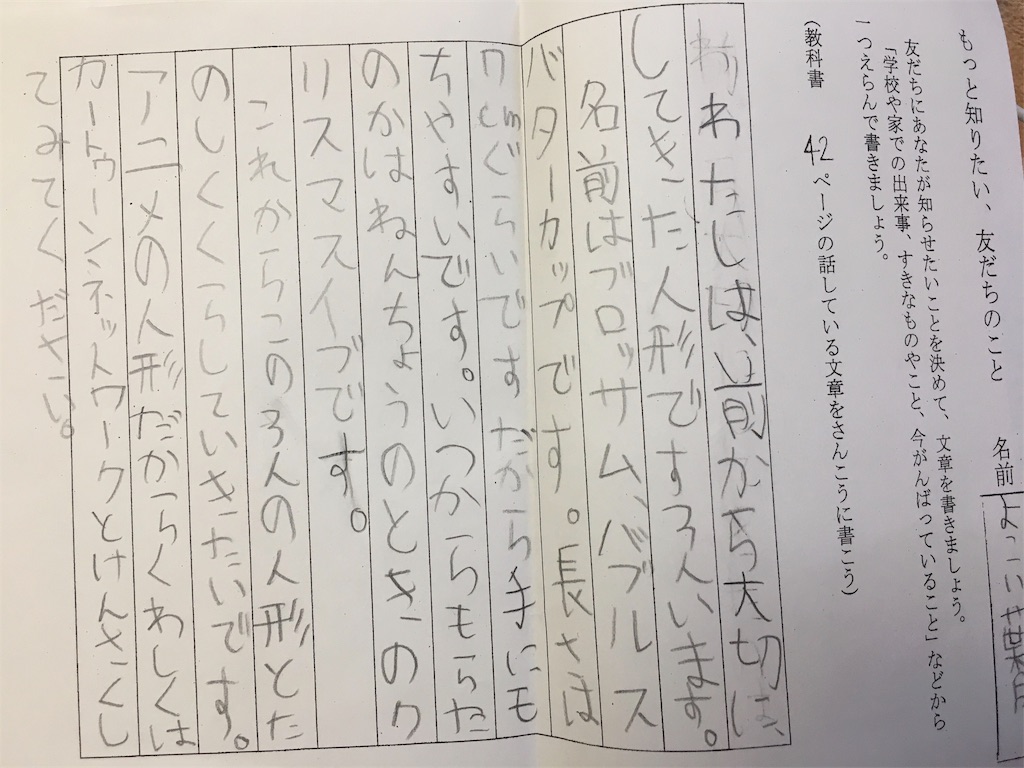 もっと知りたい、友だちのこと
名前 よこい
友だちにあなたが知らせたいことを決めて、文章を書きましょう。
「学校や家での出来事、すきなものやこと、今がんばっていること」などから
一つえらんで書きましょう。
(教科書 42ページの話している文章をさんこうに書こう)
わたしは、前から大切に、
してきた人形です3人います。
名前はブロッサム、バブルス
バターカップです。長さは
7cmぐらいですだから手にも
ちやすいです。いつからもらた
のかはねんちょうのときのク
リスマスイブです。
これからこの3人の人形とた
のしくくらしていきたいです。
アニメの人形だからくわしくは
カートゥーンネットワークとけんさくし
てみてください。